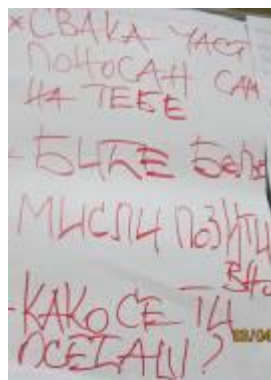 *СВАКА ЧАСТ
ПОНОСАН САМ
НА ТЕБЕ
-БИЋЕ БОЉЕ
МИСЛИ ПОЗИТИ
ВНО
-КАКО СЕ ТИ
ОСЕЋАШ?